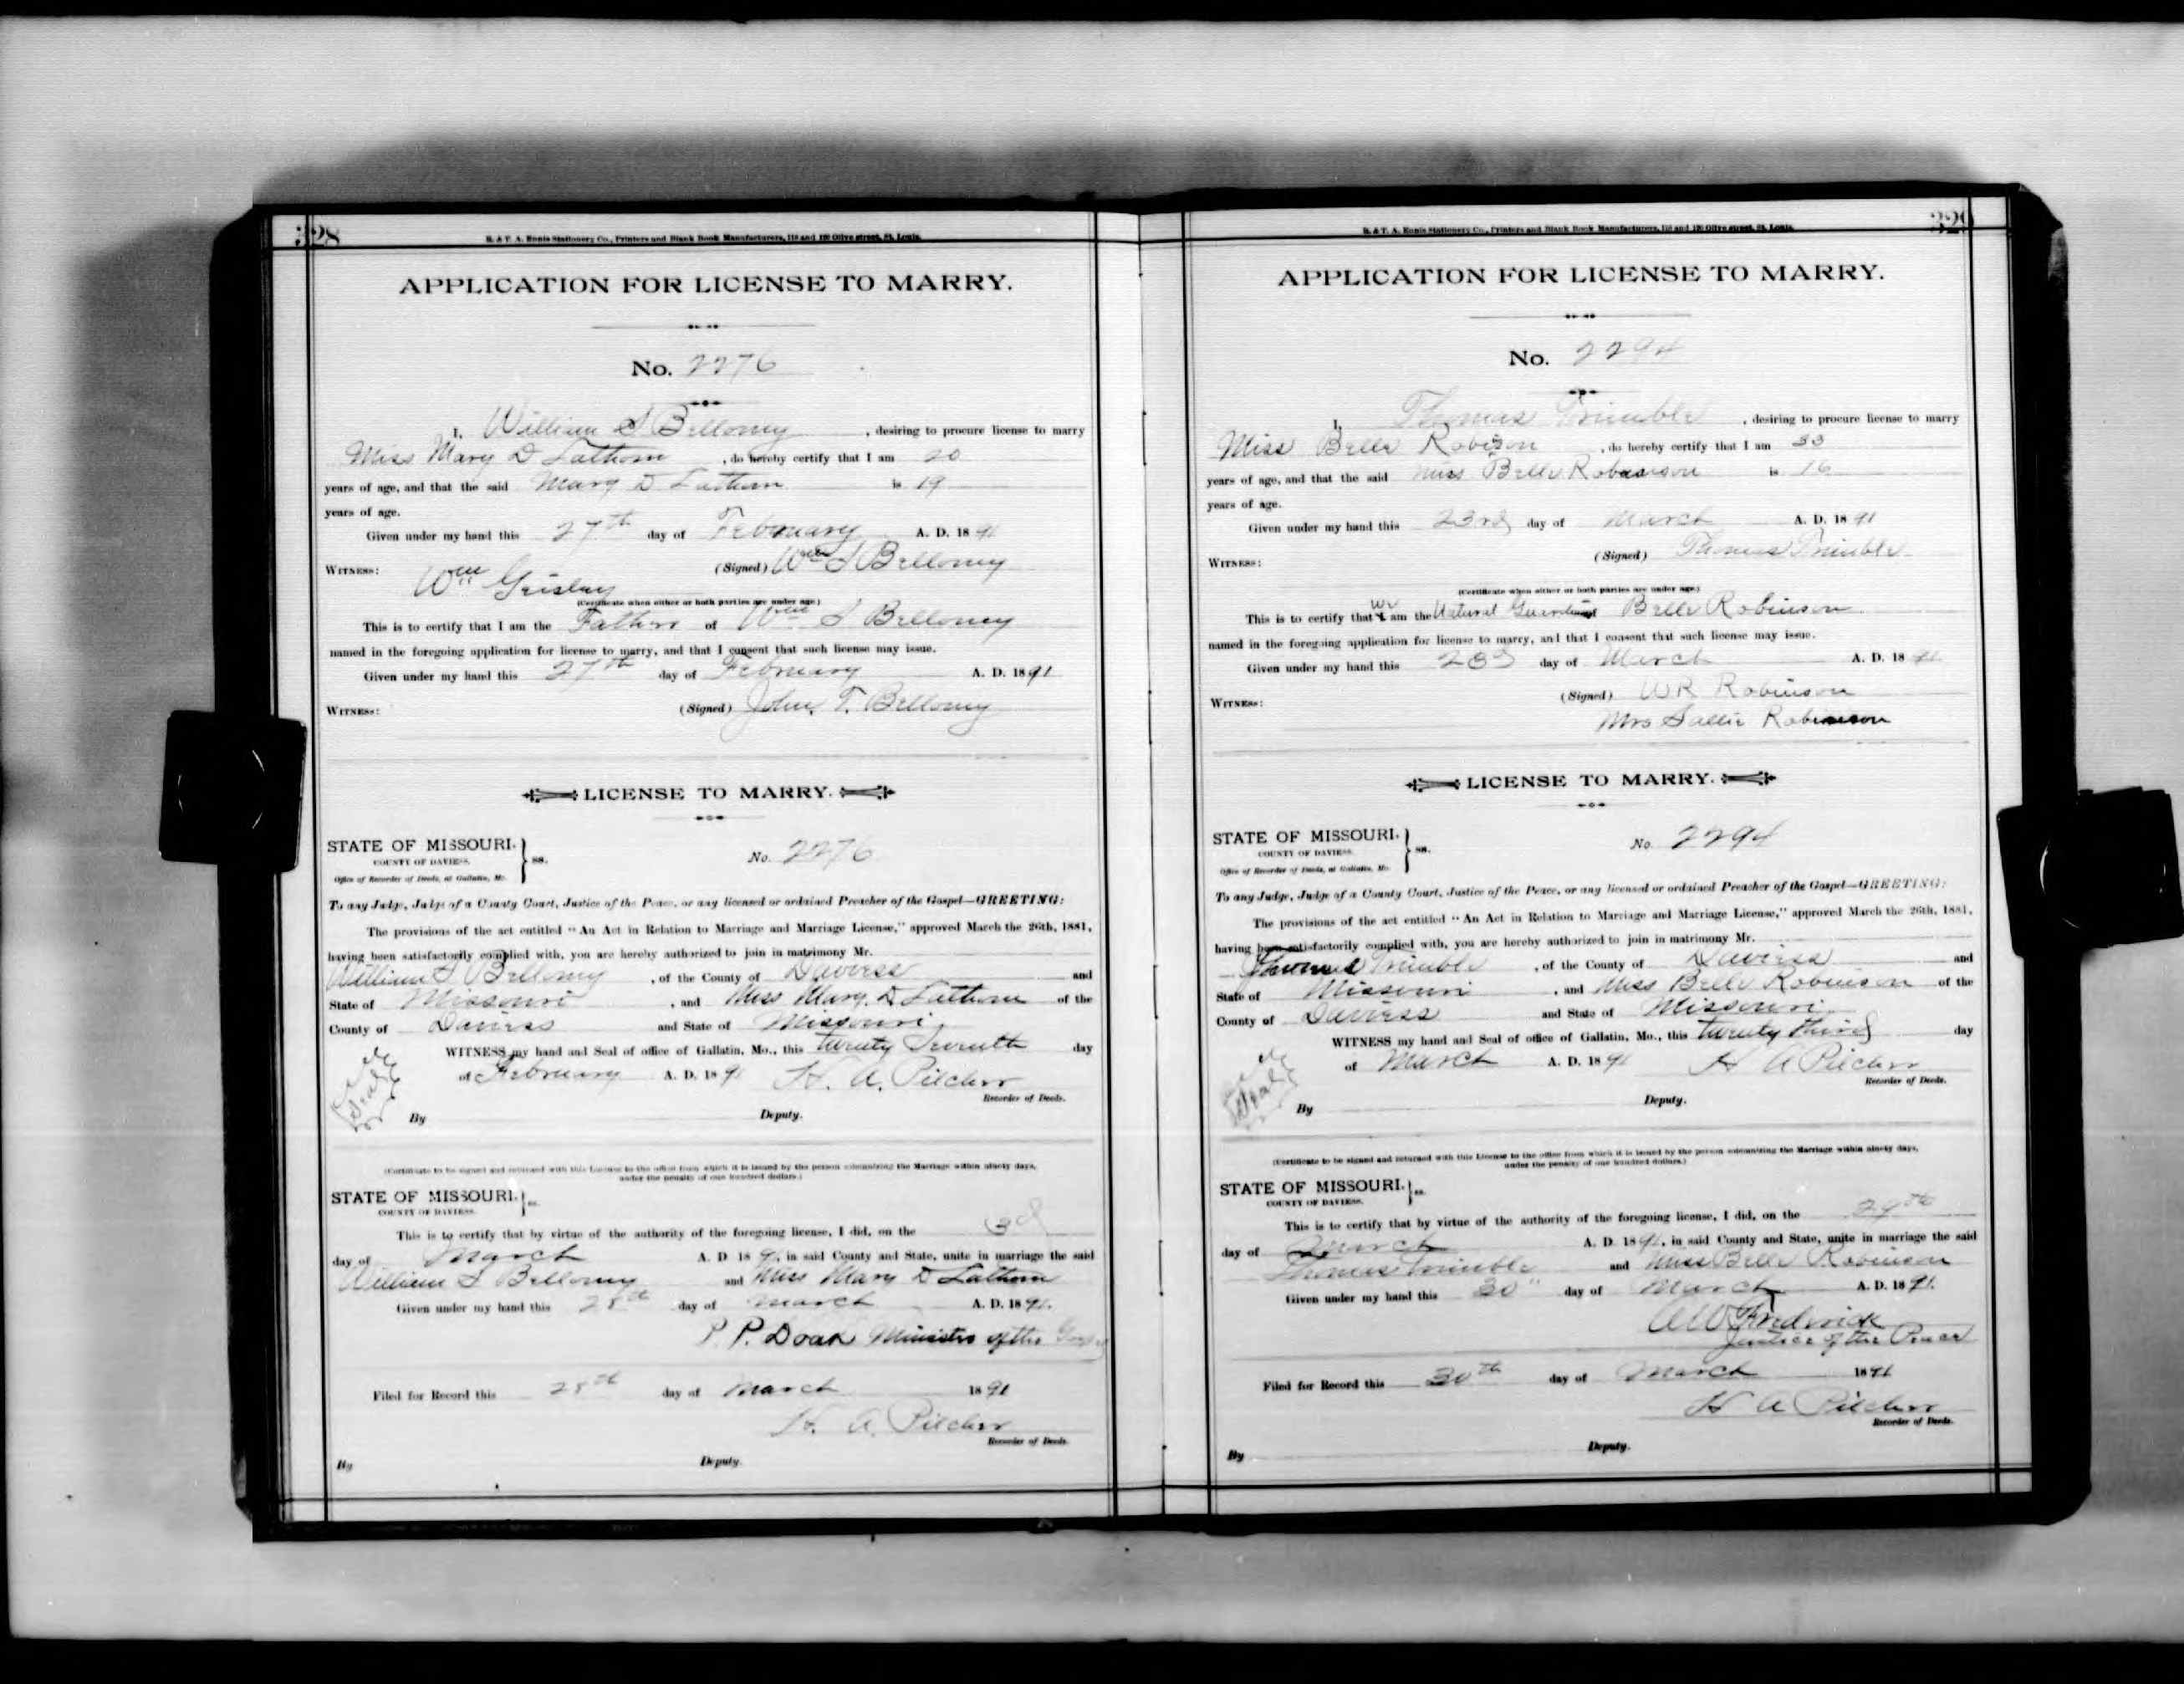 328
R. & T. A. Ennis Stationery Co., Printers and Blank Book Manufacturers, 118 and 120 Olive street, St. Louis.
APPLICATION FOR LICENSE TO MARRY.
No. 2276
I, William S Bellomy, desiring to procure license to marry
Miss Mary D Lathom, do hereby certify that I am 20
years of age, and that the said Mary D Lathom is 19
years of age.
Given under my hand this 27th day of February A. D. 1891
(Signed) Wm S Bellomy
WITNESS:
Wm
(Certificate when either or both parties are under age.)
This is to certify that I am the Father of Wm S Bellomy
named in the foregoing application for license to marry, and that I consent that such license may issue.
Given under my hand this 27th day of February A. D. 1891
WITNESS: (Signed) John T. Bellomy
LICENSE TO MARRY.
STATE OF MISSOURI, } ss. No. 2276
COUNTY OF DAVIESS.
Office of Recorder of Deeds, at Gallatin, Mo.
To any Judge, Judge of a County Court, Justice of the Peace, or any licensed or ordained Preacher of the Gospel—GREETING:
The provisions of the act entitled "An Act in Relation to Marriage and Marriage License," approved March the 26th, 1881,
having been satisfactorily complied with, you are hereby authorized to join in matrimony Mr.
William S Bellomy, of the County of Daviess and
State of Missouri, and Miss Mary. D Lathom of the
County of Daviess and State of Missouri
WITNESS my hand and Seal of office of Gallatin, Mo., this twenty Seventh day
of February A. D. 1891 H. A. Pilcher
Recorder of Deeds.
Seal
By Deputy.
(Certificate to be signed and returned with this License to the office from which it is issued by the person solemnizing the Marriage within ninety days,
under the penalty of one hundred dollars.)
STATE OF MISSOURI, } ss.
COUNTY OF DAVIESS.
This is to certify that by virtue of the authority of the foregoing license, I did, on the 3d
day of March A. D 1891, in said County and State, unite in marriage the said
William S Bellomy and Miss Mary D Lathom
Given under my hand this 28th day of March A. D. 1891.
P. P. Doak Minister of the Gospel
Filed for Record this 28th day of March 1891
H. A. Pilcher
Recorder of Deeds.
By Deputy.
329
R. & T. A. Ennis Stationery Co., Printers and Blank Book Manufacturers, 118 and 120 Olive street, St. Louis.
APPLICATION FOR LICENSE TO MARRY.
No. 2294
I, Thomas Trimble, desiring to procure license to marry
Miss Belle Robison, do hereby certify that I am 33
years of age, and that the said Miss Belle Robinson is 16
years of age.
Given under my hand this 23rd day of March A. D. 1891
(Signed) Thomas Trimble
WITNESS:
(Certificate when either or both parties are under age.)
This is to certify that we I am the Natural Guardians of Belle Robinson
named in the foregoing application for license to marry, and that I consent that such license may issue.
Given under my hand this 23d day of March A. D. 1891
(Signed) W R Robinson
WITNESS:
Mrs Sallie Robinson
LICENSE TO MARRY.
STATE OF MISSOURI, } ss. No. 2294
COUNTY OF DAVIESS.
Office of Recorder of Deeds, at Gallatin, Mo.
To any Judge, Judge of a County Court, Justice of the Peace, or any licensed or ordained Preacher of the Gospel—GREETING:
The provisions of the act entitled "An Act in Relation to Marriage and Marriage License," approved March the 26th, 1881,
having been satisfactorily complied with, you are hereby authorized to join in matrimony Mr.
Thomas Trimble, of the County of Daviess and
State of Missouri, and Miss Belle Robinson of the
County of Daviess and State of Missouri
WITNESS my hand and Seal of office of Gallatin, Mo., this twenty third day
of March A. D. 1891 H A Pilcher
Recorder of Deeds.
Seal
By Deputy.
(Certificate to be signed and returned with this License to the office from which it is issued by the person solemnizing the Marriage within ninety days,
under the penalty of one hundred dollars.)
STATE OF MISSOURI, } ss.
COUNTY OF DAVIESS.
This is to certify that by virtue of the authority of the foregoing license, I did, on the 29th
day of March A. D. 1891, in said County and State, unite in marriage the said
Thomas Trimble and Miss Belle Robinson
Given under my hand this 30" day of March A. D. 1891.
A W Fredrick
Justice of the Peace
Filed for Record this 30th day of March 1891
H A Pilcher
Recorder of Deeds.
By Deputy.